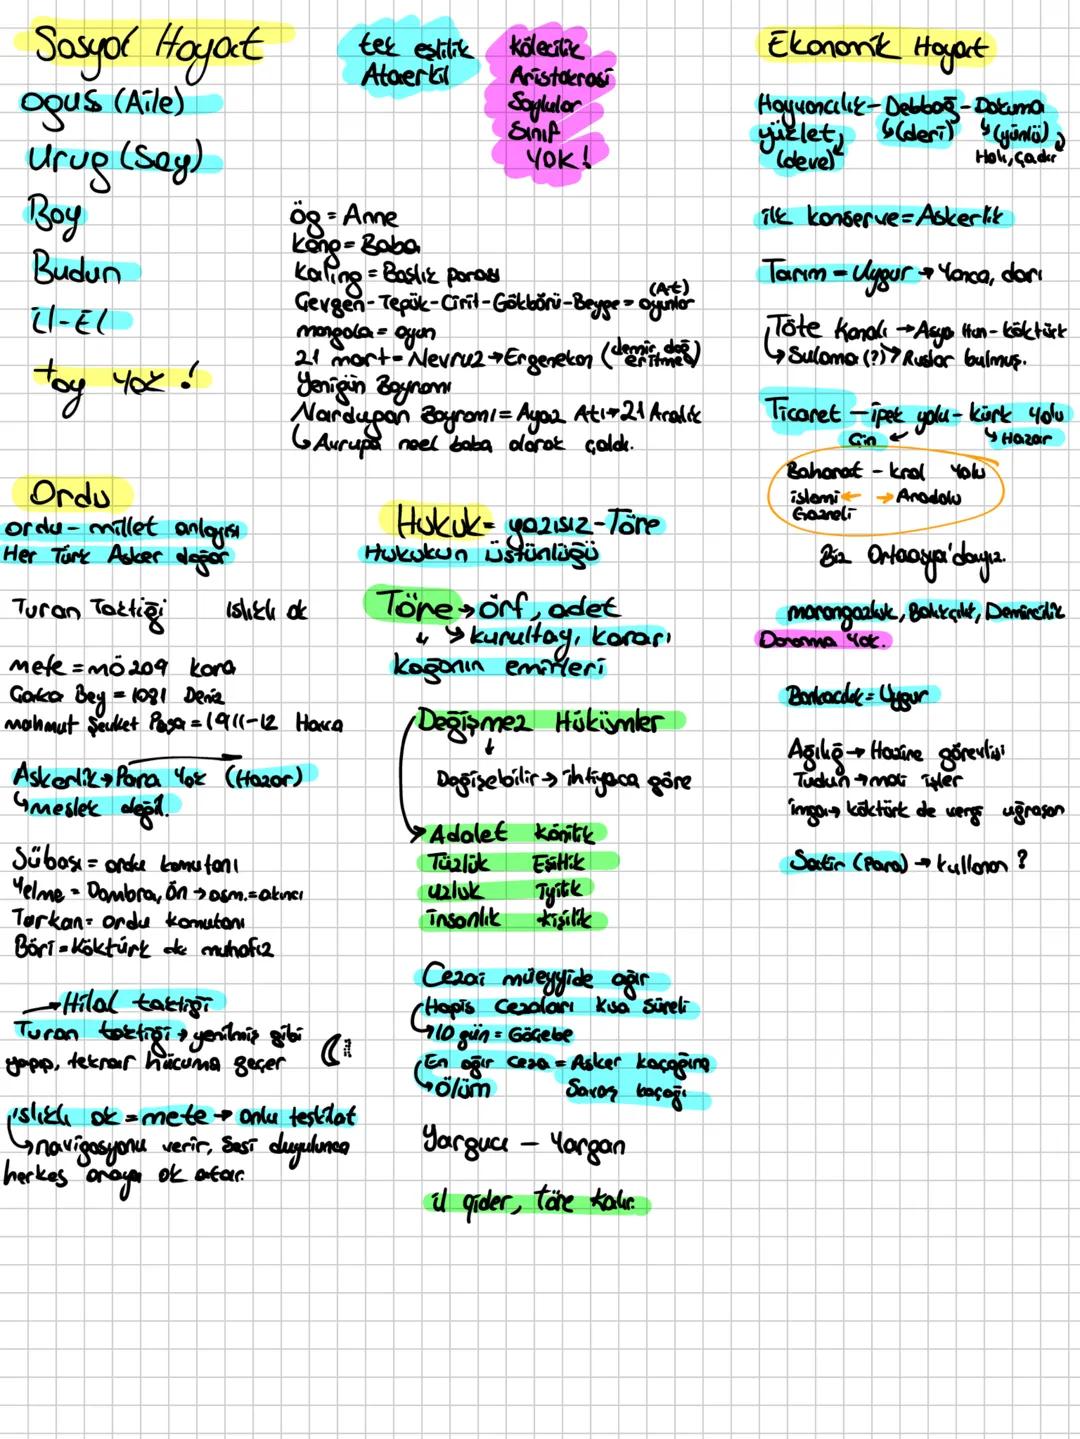 Sosyal Hayat
tek eşlilik
Ataerkil
Kölecilik
Aristokrasi
Soylular
Sınıf
YOK!
Oguş (Aile)
Urug (Soy)
Boy
Budun
İl-El
toy yok!
ög = Anne
kang = Baba
Kalıng = Başlık parası
Gevgen-Tepük-Cirit-Gökbörü-Beyge = oyunlar
(At)
mangala = oyun
21 mart = Nevruz → Ergenekon (demir dağ eritme)
Yenigün Bayramı
Nardugan Bayramı = Ayaz Atı → 21 Aralık
Avrupa noel baba olarak çaldı.
Ordu
ordu-millet anlayışı
Her Türk Asker doğar
Turan Taktiği ıslıklı ok
mete = mö 209 kara
Çaka Bey = 1081 Deniz
mahmut Şevket Paşa = 1911-12 Hava
Askerlik → Para Yok (Hazar)
meslek değil.
Sübaşı = ordu komutanı
Yelme = Dombra, Ön → osm. = akıncı
Tarkan = ordu komutanı
Böri = Köktürk de muhafız
→ Hilal taktiği
Turan taktiği → yenilmiş gibi
yapıp, tekrar hücuma geçer
ıslıklı ok = mete → onlu teşkilat
navigasyonu verir, Sesi duyulunca
herkes oraya ok atar.
Hukuk = yazısız-Töre
Hukukun üstünlüğü
Töre → örf, adet
→ kurultay, kararı
kağanın emirleri
Değişmez Hükümler
↓
Değişebilir → ihtiyaca göre
Adalet Könilik
Tüzlük Eşitlik
uzluk İyilik
insanlık kişilik
Cezai müeyyide ağır
Hapis Cezaları kısa süreli
→ 10 gün = Göçebe
En ağır ceza = Asker kaçağına
→ ölüm Savaş kaçağı
Yargucı - Yargan
il gider, töre kalır.
Ekonomik Hayat
Hayvancılık - Debbağ - Dokuma
yüzlet, (deri) (yünlü)
(deve) Halı, çadır
ilk konserve = Askerlik
Tarım - Uygur → Yonca, darı
Töte Kanalı → Asya Hun - köktürk
→ Sulama (?) → Ruslar bulmuş.
Ticaret - ipek yolu - kürk Yolu
Çin Hazar
Baharat - kral Yolu
islami ← → Anadolu
Gazneli
Biz Ortaasya'dayız.
marangozluk, Balıkçılık, Demircilik
Donanma Yok.
Bankacılık = Uygur
Ağılığ → Hazine görevlisi
Tudun → mali işler
imga → köktürk de vergi uğraşan
Satir (Para) → kullanan ?